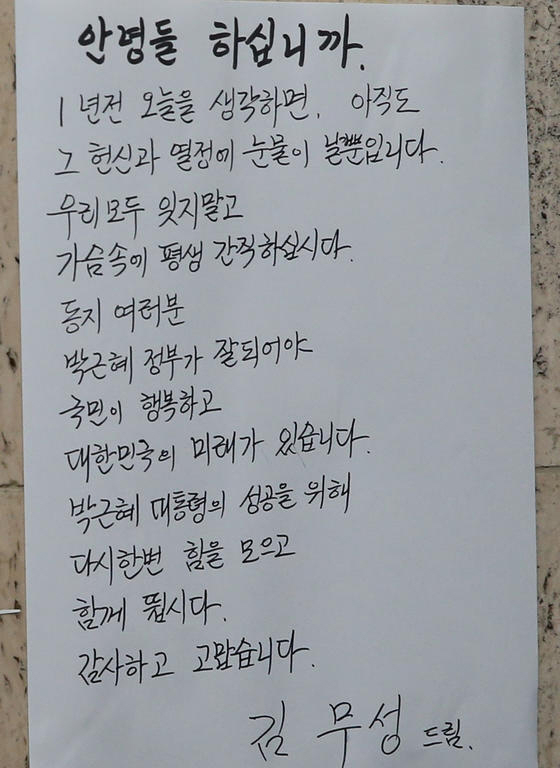 안녕들 하십니까.
1년전 오늘을 생각하면, 아직도
그 헌신과 열정에 눈물이 날뿐입니다.
우리모두 잊지말고
가슴속에 평생 간직하십시다.
동지 여러분
박근혜 정부가 잘되어야
국민이 행복하고
대한민국의 미래가 있습니다.
박근혜 대통령의 성공을 위해
다시한번 힘을 모으고
함께 뜁시다.
감사하고 고맙습니다.
김 무성 드림.